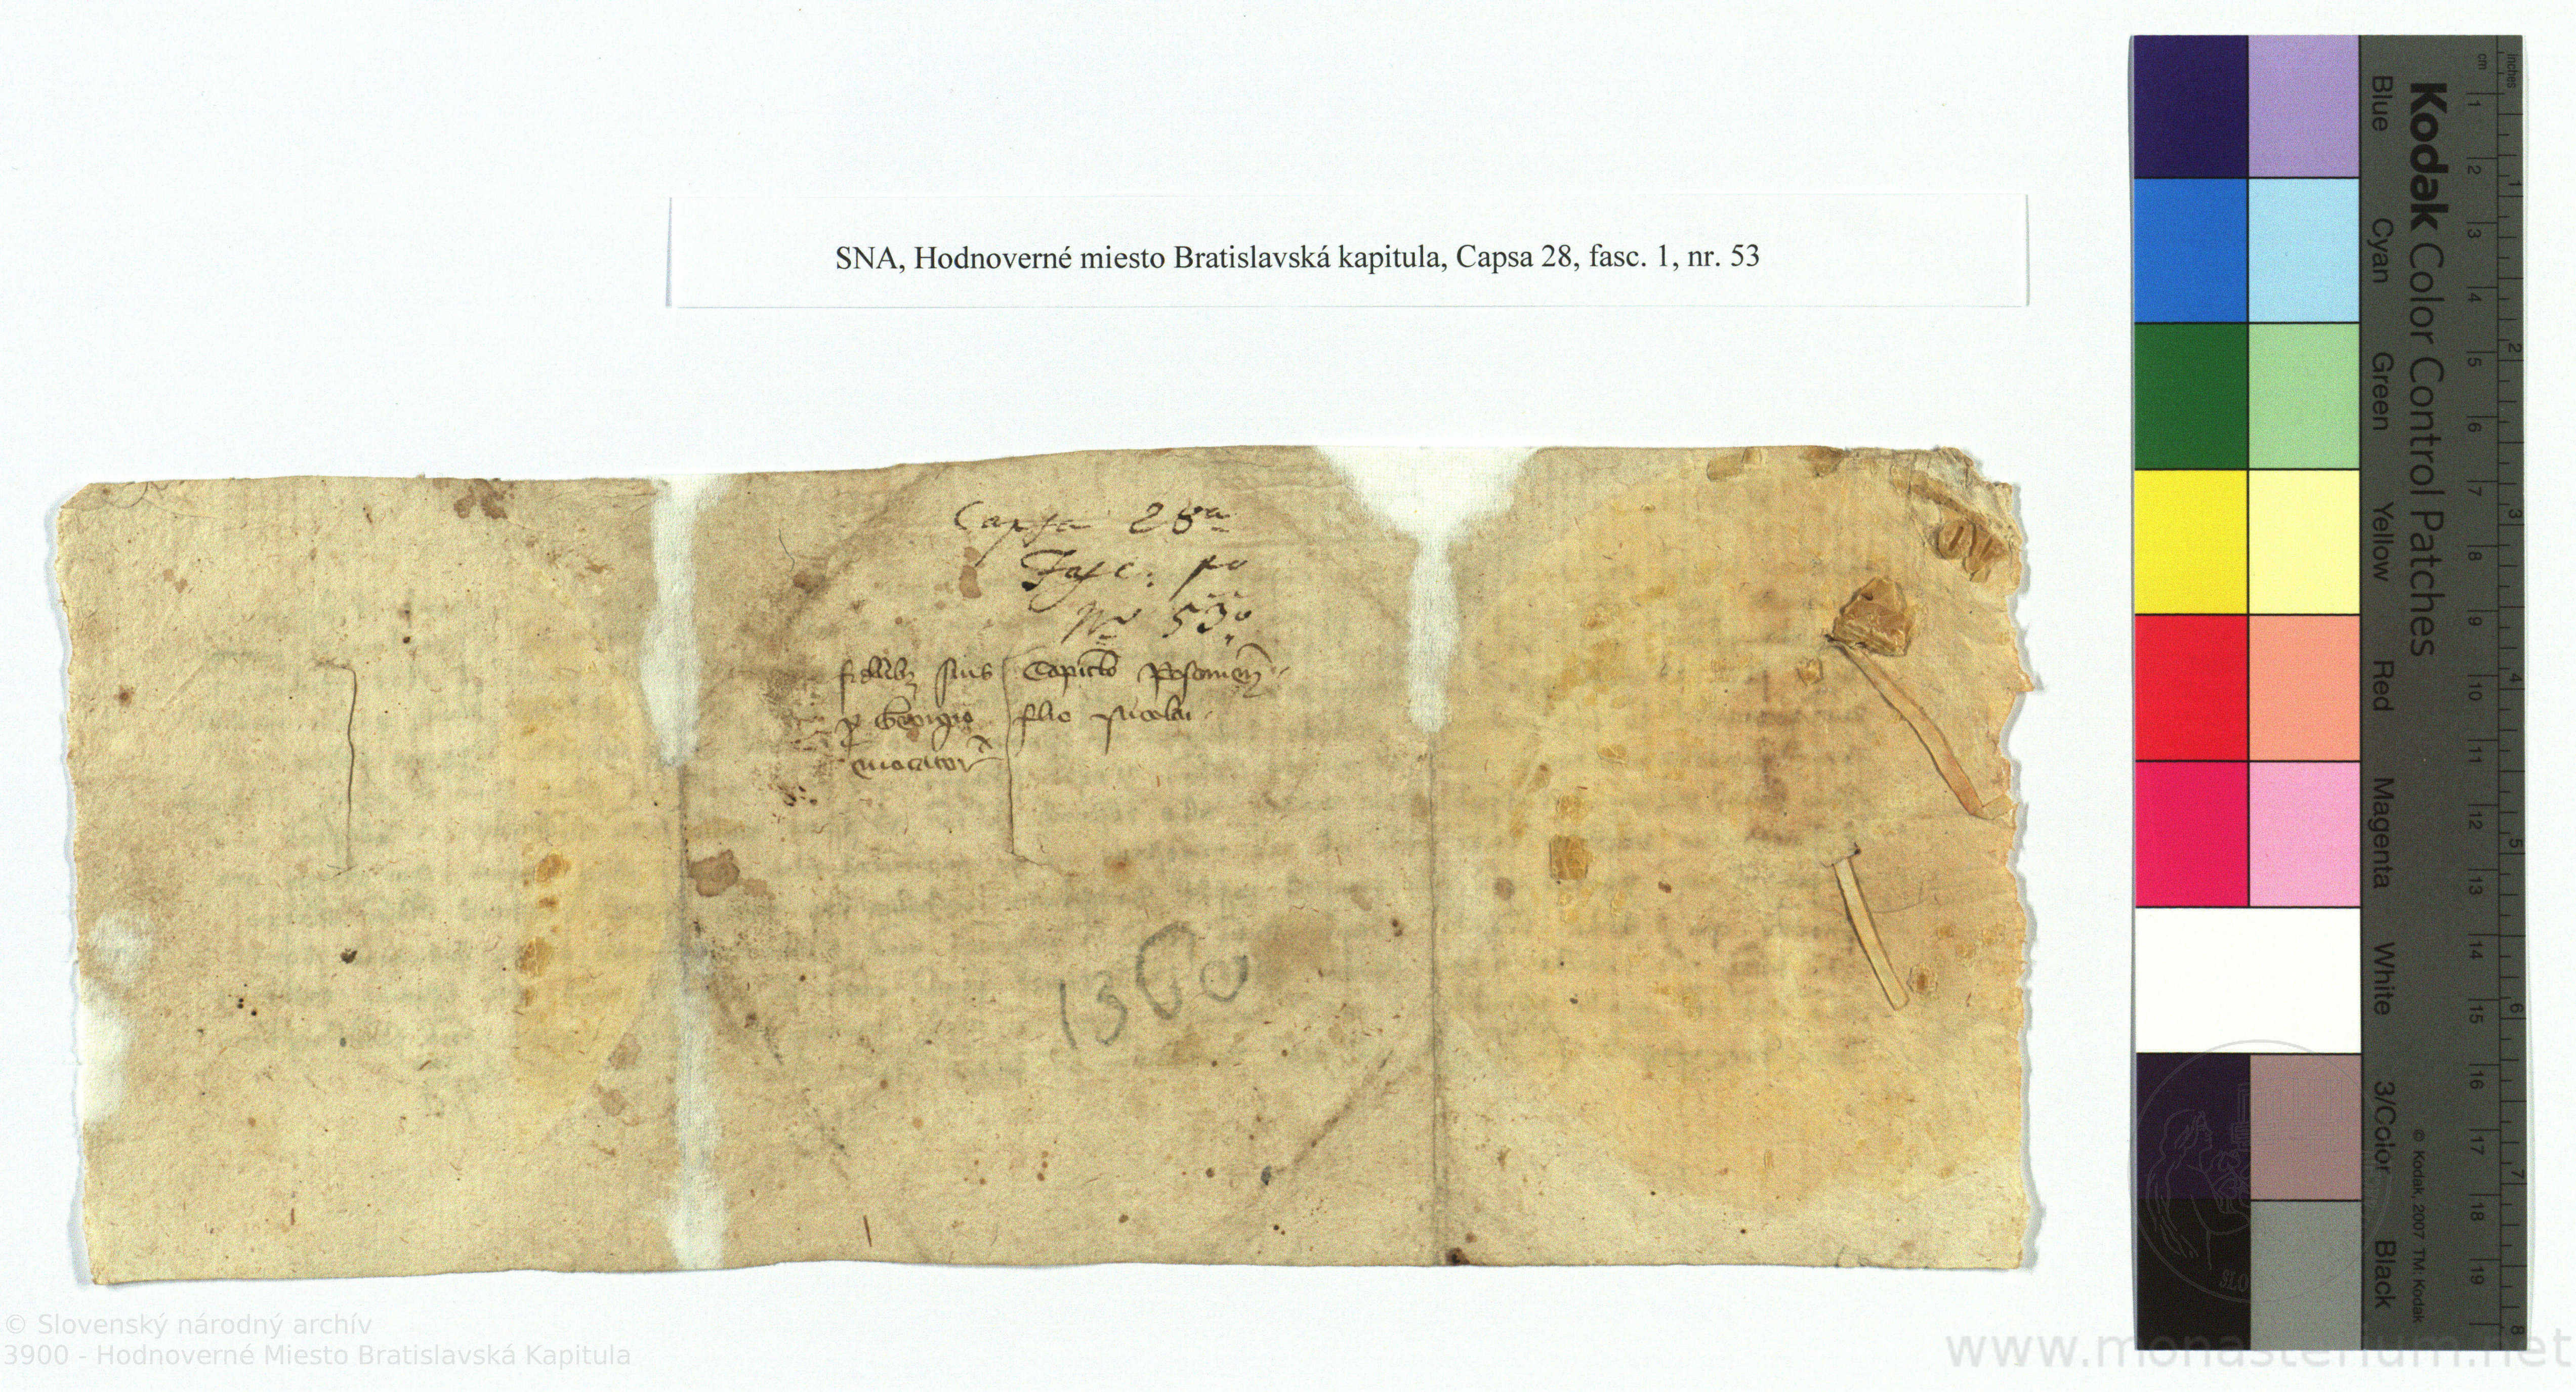 SNA, Hodnoverné miesto Bratislavská kapitula, Capsa 28, fasc. 1, nr. 53
Capsa 28a
Fasc: po
Nro 53o
fidelibz suis Capitlo Posonien
p Georgio filio Nicolai
1360
© Slovenský národný archív
3900 - Hodnoverné Miesto Bratislavská Kapitula
www.monasterium.net
Kodak Color Control Patches
Blue Cyan Green Yellow Red Magenta White 3/Color Black
© Kodak, 2007 TM: Kodak
cm 1 2 3 4 5 6 7 8 9 10 11 12 13 14 15 16 17 18 19
inches 1 2 3 4 5 6 7 8